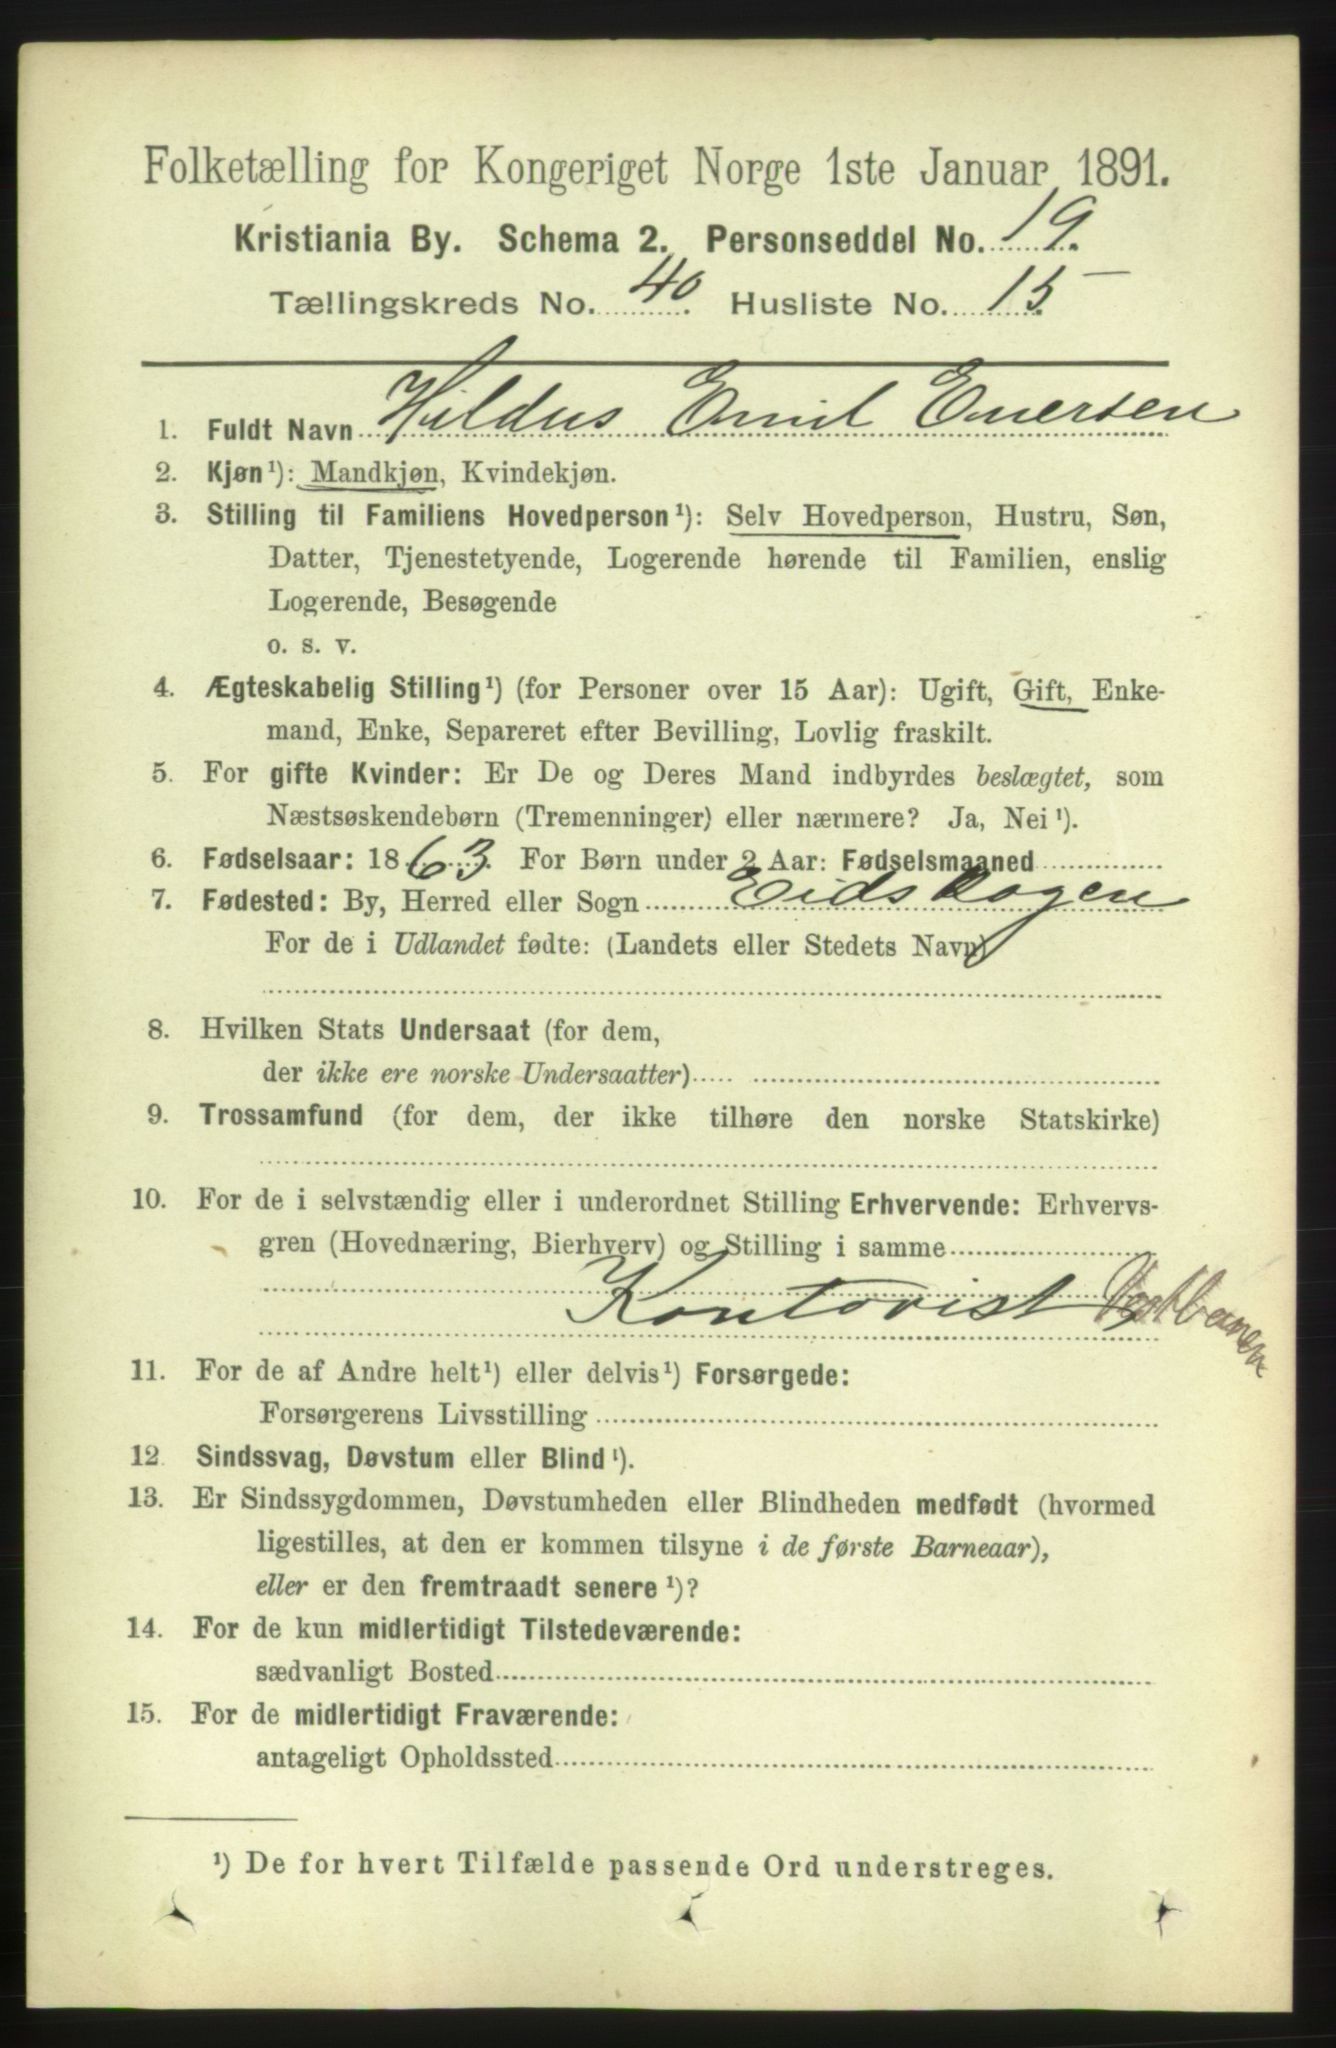 Folketælling for Kongeriget Norge 1ste Januar 1891.
Kristiania By. Schema 2. Personseddel No. 19.
Tællingskreds No. 40. Husliste No. 15.
1. Fuldt Navn Hildus Emil Enersen
2. Kjøn¹): Mandkjøn, Kvindekjøn.
3. Stilling til Familiens Hovedperson¹): Selv Hovedperson, Hustru, Søn,
Datter, Tjenestetyende, Logerende hørende til Familien, enslig
Logerende, Besøgende
o. s. v.
4. Ægteskabelig Stilling¹) (for Personer over 15 Aar): Ugift, Gift, Enke-
mand, Enke, Separeret efter Bevilling, Lovlig fraskilt.
5. For gifte Kvinder: Er De og Deres Mand indbyrdes beslægtet, som
Næstsøskendebørn (Tremenninger) eller nærmere? Ja, Nei¹).
6. Fødselsaar: 1863. For Børn under 2 Aar: Fødselsmaaned
7. Fødested: By, Herred eller Sogn Eidskogen
For de i Udlandet fødte: (Landets eller Stedets Navn)
8. Hvilken Stats Undersaat (for dem,
der ikke ere norske Undersaatter)
9. Trossamfund (for dem, der ikke tilhøre den norske Statskirke)
10. For de i selvstændig eller i underordnet Stilling Erhvervende: Erhvervs-
gren (Hovednæring, Bierhverv) og Stilling i samme
Kontorist Vestbanen
11. For de af Andre helt¹) eller delvis¹) Forsørgede:
Forsørgerens Livsstilling
12. Sindssvag, Døvstum eller Blind¹).
13. Er Sindssygdommen, Døvstumheden eller Blindheden medfødt (hvormed
ligestilles, at den er kommen tilsyne i de første Barneaar),
eller er den fremtraadt senere¹)?
14. For de kun midlertidigt Tilstedeværende:
sædvanligt Bosted
15. For de midlertidigt Fraværende:
antageligt Opholdssted
¹) De for hvert Tilfælde passende Ord understreges.